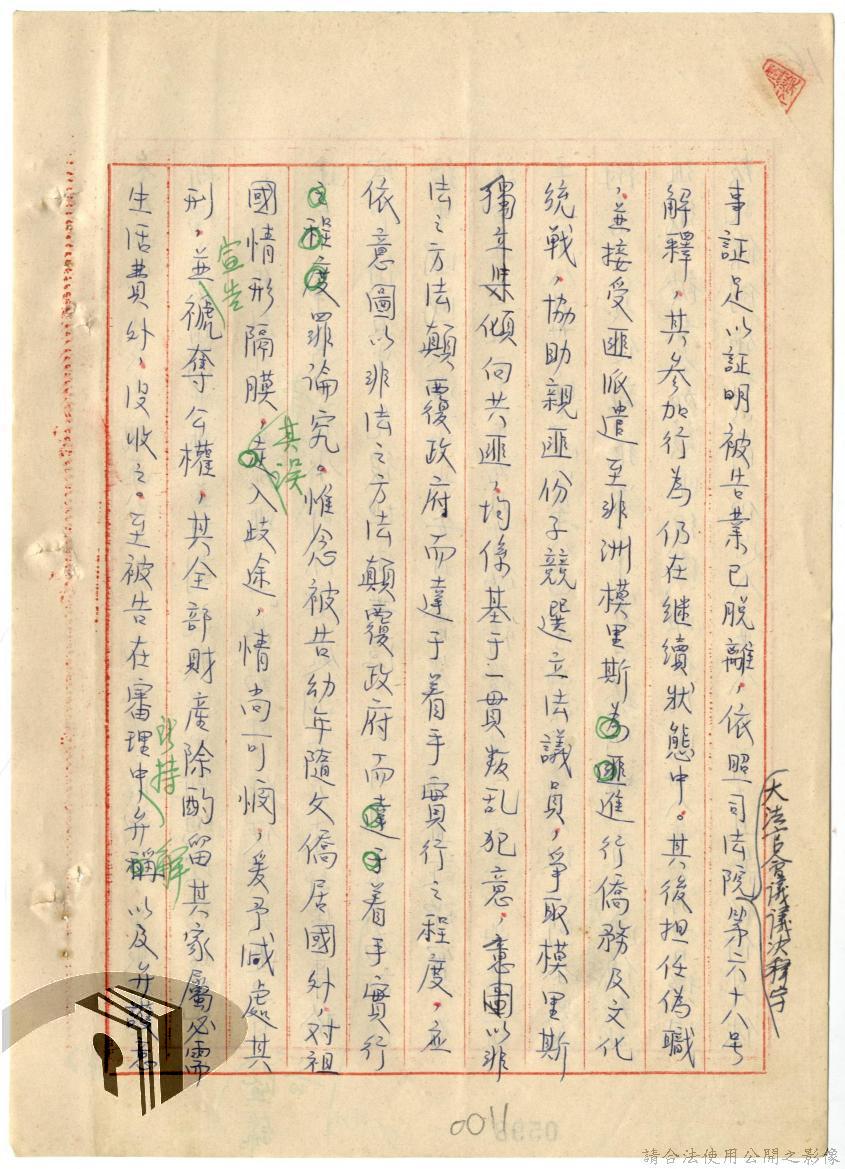 事証足以証明被告業已脫離，依照司法院第六十八号
大法官會議議決釋字
解釋，其參加行為仍在继續狀態中。其後担任偽職
，並接受匪派遣至非洲模里斯為匪進行僑務及文化
統戰，協助親匪份子競選立法議員，爭取模里斯
獨立後傾向共匪，均係基于一貫叛乱犯意，意圖以非
法之方法顛覆政府而達于着手實行之程度，应
依意圖以非法之方法顛覆政府而達于着手實行
之程度罪論究。惟念被告幼年隨父僑居國外，对祖
國情形隔膜，走入歧途，情尚可憫，爰予減處其
其误
刑，並褫奪公權，其全部財產除酌留其家屬必需
宣告
生活費外，没收之。至被告在審理中弁稱以及弁護意
所持
解
0011
請合法使用公開之影像